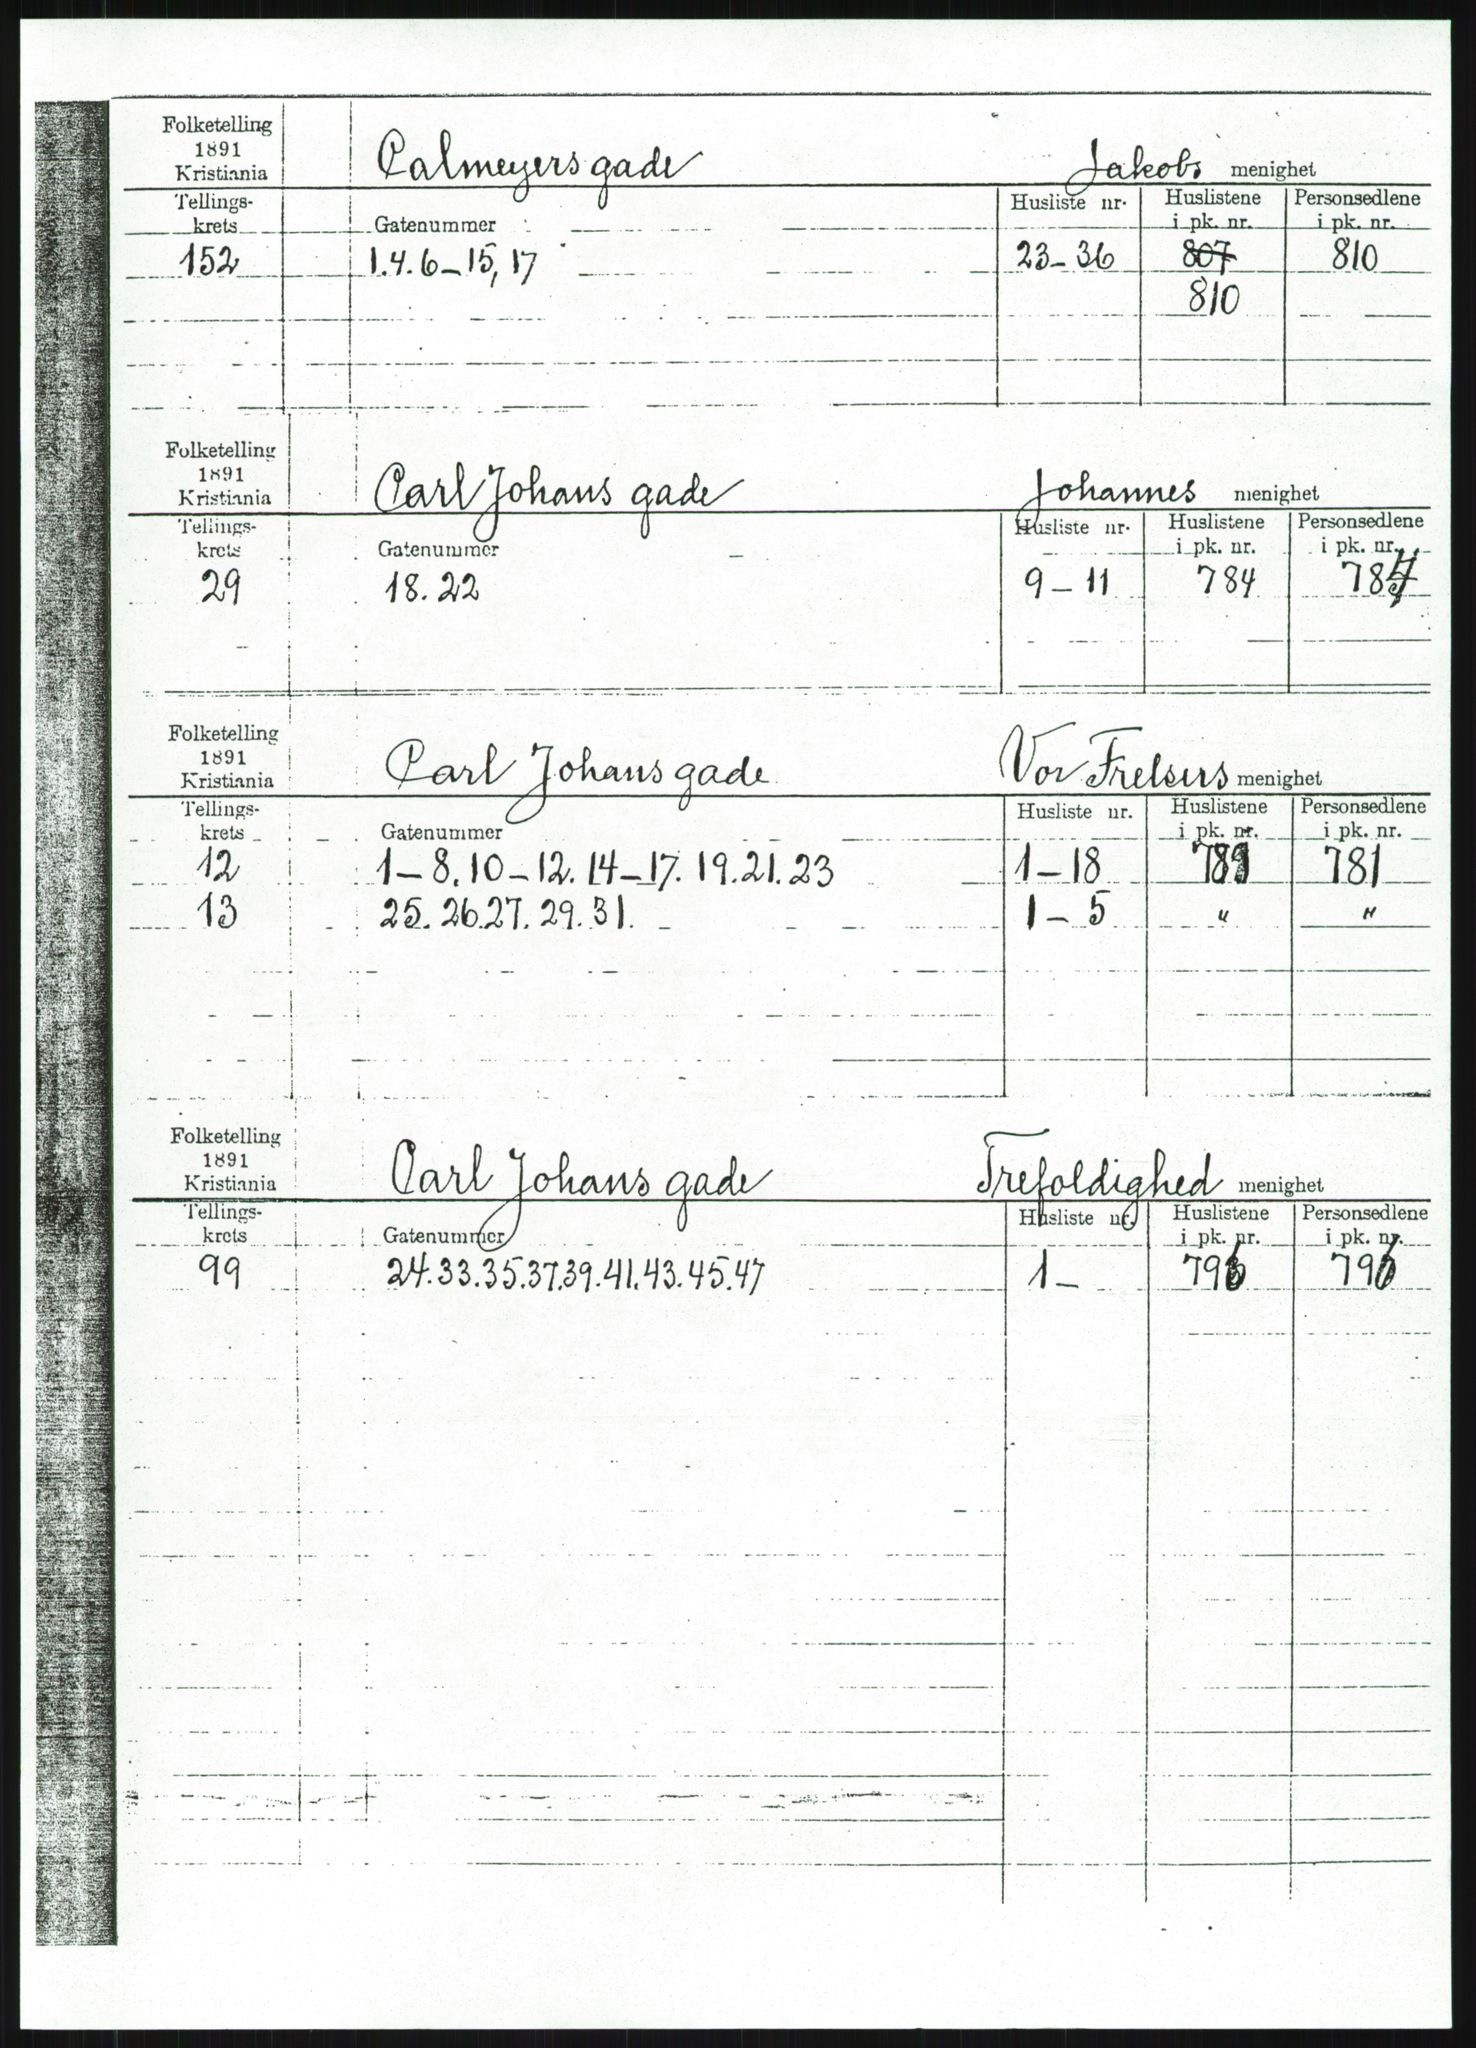 Folketelling
1891
Kristiania
Calmeyers gade
Jakobs menighet
Tellings-
krets
Gatenummer
Husliste nr.
Huslistene
i pk. nr.
Personsedlene
i pk. nr.
152
1.4.6-15,17
23-36
807
810
810
Folketelling
1891
Kristiania
Carl Johans gade
Johannes menighet
Tellings-
krets
Gatenummer
Husliste nr.
Huslistene
i pk. nr.
Personsedlene
i pk. nr.
29
18.22
9-11
784
Folketelling
1891
Kristiania
Carl Johans gade
Vor Frelsers menighet
Tellings-
krets
Gatenummer
Husliste nr.
Huslistene
i pk. nr.
Personsedlene
i pk. nr.
12
1-8.10-12.14-17.19.21.23
1-18
781
13
25.26.27.29.31.
1-5
"
"
Folketelling
1891
Kristiania
Carl Johans gade
Trefoldighed menighet
Tellings-
krets
Gatenummer
Husliste nr.
Huslistene
i pk. nr.
Personsedlene
i pk. nr.
99
24.33.35.37.39.41.43.45.47
1-
796
796